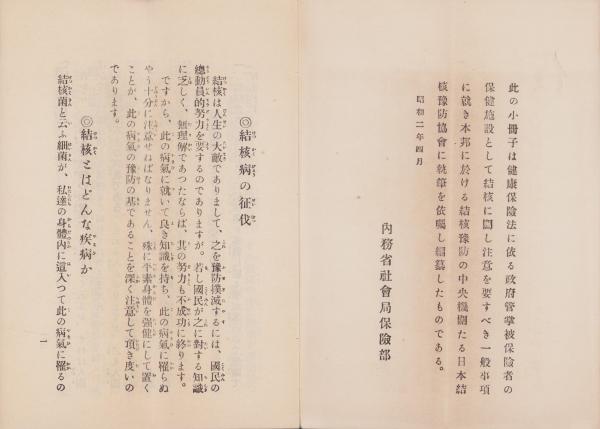 此の小冊子は健康保險法に依る政府管掌被保險者の
保健施設として結核に關し注意を要すべき一般事項
に就き本邦に於ける結核豫防の中央機關たる日本結
核豫防協會に執筆を依囑し編纂したものである。
昭和二年四月
內務省社會局保險部
◎結核病の征伐
結核は人生の大敵でありまして、之を豫防撲滅するには、國民の
總動員的努力を要するのでありますが。若し國民が之に對する知識
に乏しく、無理解であつたならば、其の努力も不成功に終ります。
ですから、此の病氣に就いて良き知識を持ち、此の病氣に罹らぬ
やう十分に注意せねばなりません、殊に平素身體を强健にして置く
ことが、此の病氣の豫防の基であることを深く注意して頂き度いの
であります。
◎結核とはどんな疾病か
結核菌と云ふ細菌が、私達の身體內に這入つて此の病氣に罹るの
一